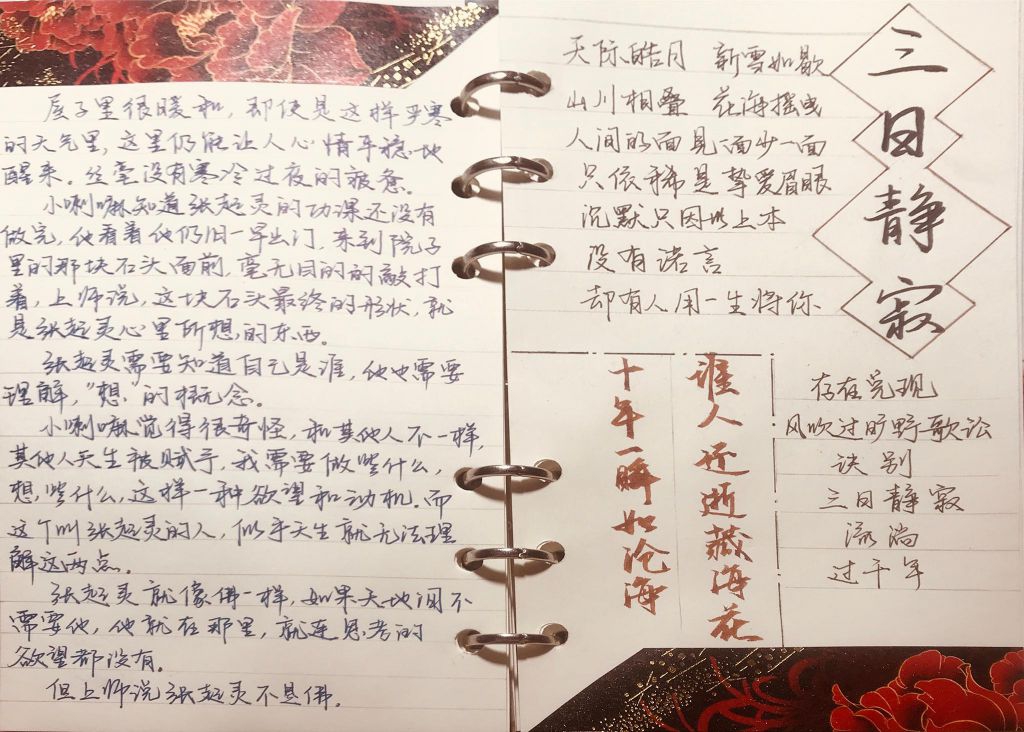 屋子里很暖和，即使是这样严寒
的天气里，这里仍能让人心情平稳地
醒来。丝毫没有寒冷过夜的疲惫。
小喇嘛知道张起灵的功课还没有
做完，他看着他仍旧一早出门，来到院子
里的那块石头面前，毫无目的的敲打
着，上师说，这块石头最终的形状，就
是张起灵心里所想的东西。
张起灵需要知道自己是谁，他也需要
理解，“想”的概念。
小喇嘛觉得很奇怪，和其他人不一样，
其他人天生被赋予，我需要做些什么，
想些什么，这样一种欲望和动机。而
这个叫张起灵的人，似乎天生就无法理
解这两点。
张起灵就像佛一样，如果天地间不
需要他，他就在那里，就连思考的
欲望都没有。
但上师说张起灵不是佛。
三日静寂
天际皓月 新雪如歇
山川相叠 花海摇曳
人间的面见一面少一面
只依稀是挚爱眉眼
沉默只因以上本
没有诺言
却有人用一生将你
存在兑现
风吹过旷野歌讼
诀别
三日静寂
流淌
过千年
谁人还逝藏海花
十年一瞬如沧海